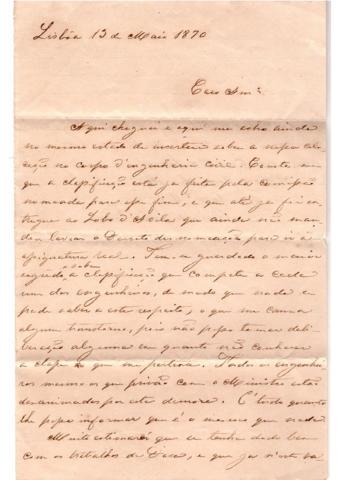 Lisboa 13 de Maio 1870
Caro Am.º
Aqui cheguei e aqui me acho ainda
no mesmo estado de incerteza sobre a nossa collo-
cação no corpo d'engenharia civil. Consta em
que a classificação está ja feita pela comissão
nomeada para esse fim, e que até ja foi en-
tregue ao Lobo d'Avila que ainda não man-
dou lavrar o Decreto de nomeação para ir á
assignatura real. Tem-se guardado o maior
segredo sobre a classificação que compete a cada
um dos engenheiros, de modo que nada se
pode saber a este respeito, o que me causa
algum transtorno, pois não posso tomar deli-
beração alguma em quanto não conhecer
a classe a que me pertence. Todos os engenhei-
ros mesmo os que privão com o Ministro estão
desanimados por esta demora. É tudo quanto
lhe posso informar que é o mesmo que nada
Muito estimarei que se tenha dado bem
com os trabalhos de e que ja